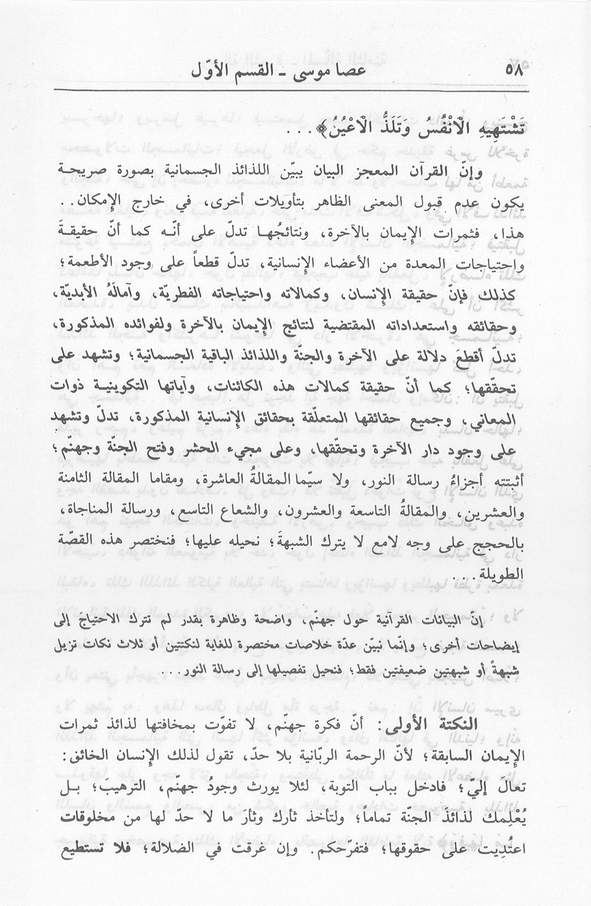 ٥٨ عصا موسى ـ القسم الأوّل
تَشْتَهِيهِ الْاَنْفُسُ وَتَلَذُّ الْاَعْيُنُ﴾...
وإنّ القرآن المعجز البيان يبيّن اللذائذ الجسمانية بصورة صريحة
يكون عدم قبول المعنى الظاهر بتأويلات أخرى، في خارج الإمكان..
هذا، فثمرات الإيمان بالآخرة، ونتائجُها تدلّ على أنّه كما أنّ حقيقة
واحتياجات المعدة من الأعضاء الإنسانية، تدلّ قطعاً على وجود الأطعمة؛
كذلك فإنّ حقيقة الإنسان، وكمالاته واحتياجاته الفطريّة، وآمالَهُ الأبديّة،
وحقائقه واستعداداته المقتضية لنتائج الإيمان بالآخرة ولفوائده المذكورة،
تدلّ أقطعَ دلالة على الآخرة والجنّة واللذائذ الباقية الجسمانية؛ وتشهد على
تحقّقها؛ كما أنّ حقيقة كمالات هذه الكائنات، وآياتها التكوينية ذوات
المعاني، وجميع حقائقها المتعلّقة بحقائق الإنسانية المذكورة، تدلّ وتشهد
على وجود دار الآخرة وتحقّقها، وعلى مجيء الحشر وفتح الجنّة وجهنّم؛
أثبتته أجزاءُ رسالة النور، ولا سيّما المقالةُ العاشرة، ومقاما المقالة الثامنة
والعشرين، والمقالةُ التاسعة والعشرون، والشعاع التاسع، ورسالة المناجاة،
بالحجج على وجه لامع لا يترك الشبهة؛ نحيله عليها؛ فنختصر هذه القصّة
الطويلة...
إنّ البيانات القرآنية حول جهنّم، واضحة وظاهرة بقدر لم تترك الاحتياج إلى
إيضاحات أخرى؛ وإنّما نبيّن عدّة خلاصات مختصرة للغاية لنكتتين أو ثلاث نكات تزيل
شبهةً أو شبهتين ضعيفتين فقط؛ فنحيل تفصيلها إلى رسالة النور...
النكتة الأولى: أنّ فكرة جهنّم، لا تفوّت بمخافتها لذائذ ثمرات
الإيمان السابقة؛ لأنّ الرحمة الربّانية بلا حدّ، تقول لذلك الإنسان الخائق:
تعال إليّ؛ فادخل بباب التوبة، لئلا يورث وجودُ جهنّم، الترهيب؛ بـل
يُعْلِمك لذائذَ الجنّة تماماً؛ ولتأخذ ثأرك وثأرَ ما لا حدّ لها من مخلوقات
اعتُدِيت على حقوقها؛ فتفرّحكم. وإن غرقت في الضلالة؛ فلا تستطيع